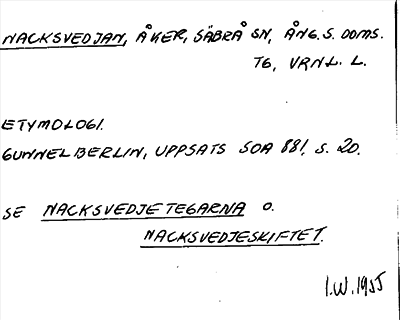 NACKSVEDJAN, ÅKER, SÄBRÅ SN, ÅNG. S. DOMS.
TG, VRNL. L.
ETYMOLOGI.
GUNNEL BERLIN, UPPSATS SOA 881, S. 20.
SE NACKSVEDJETEGARNA O.
NACKSVEDJESKIFTET.
I.W. 1955